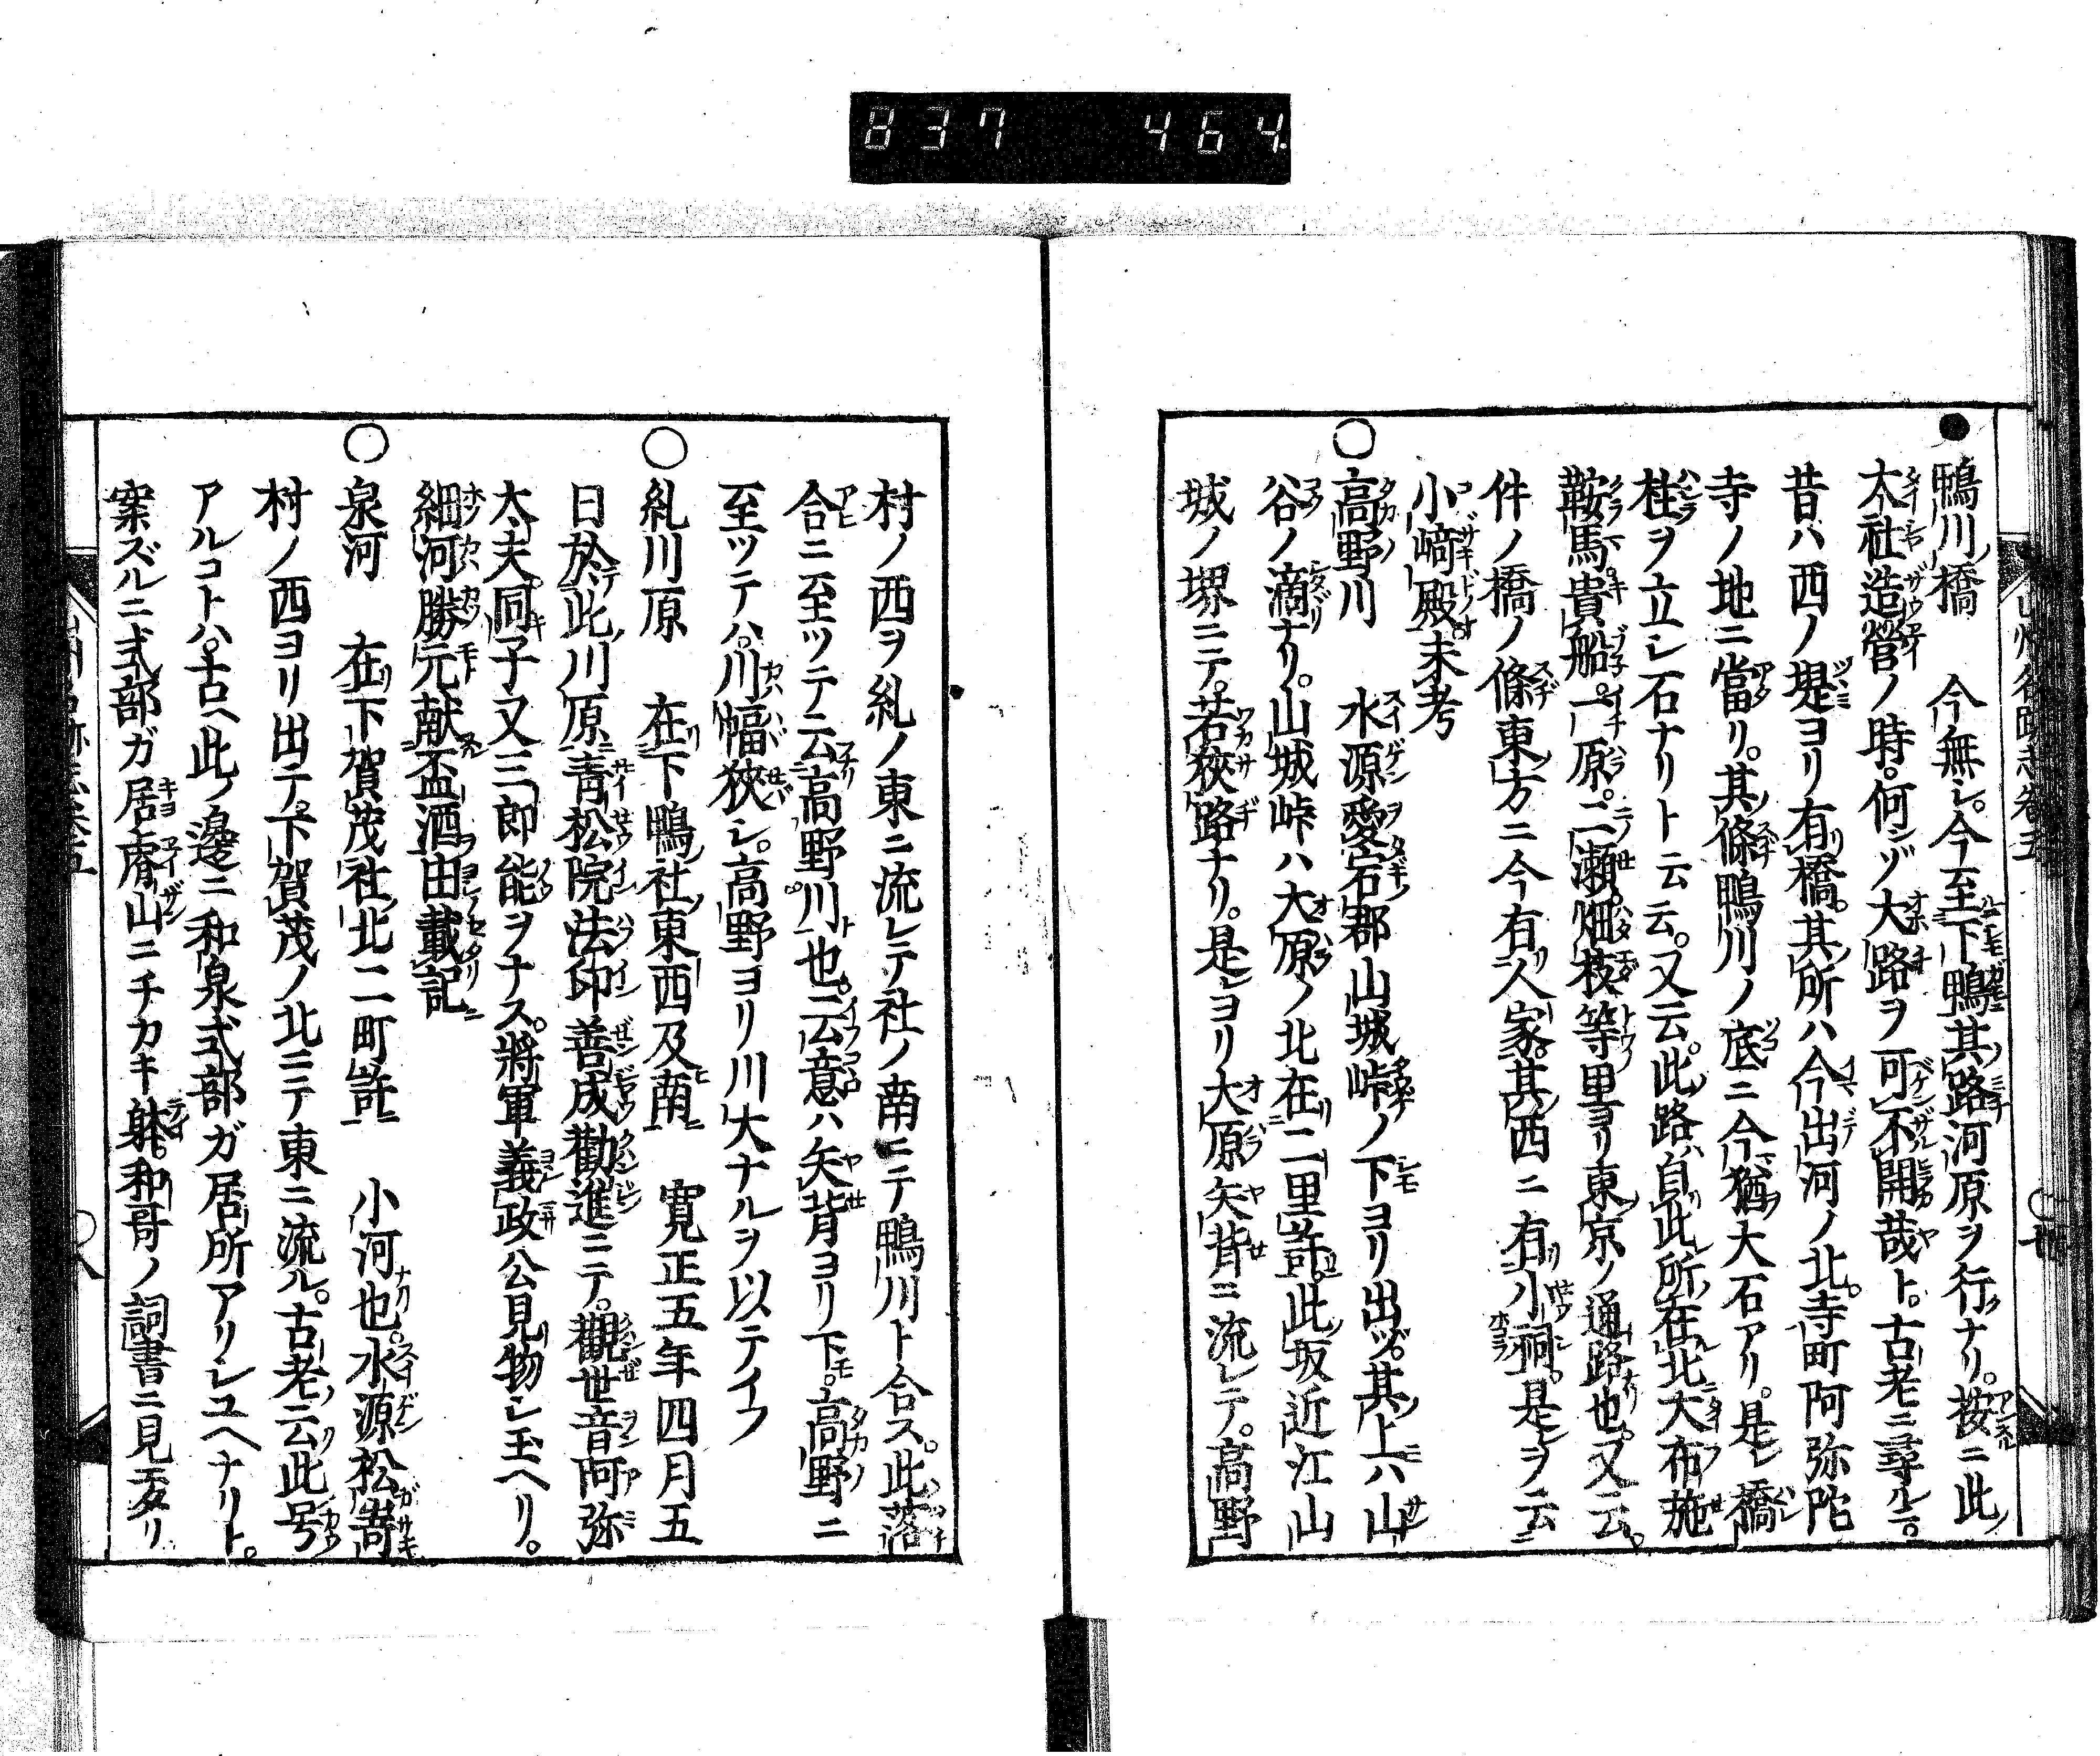 837 464
●鴨川橋 今無シ。今至下鴨其路河原ヲ行ナリ。按ニ此
大社造營ノ時。何ンゾ大路ヲ可不開哉ト。古老ニ尋ルニ。
昔ハ西ノ堤ヨリ有橋。其所ハ今出河ノ北。寺町阿弥陀
寺ノ地ニ當リ。其條鴨川ノ底ニ今猶大石アリ。是レ橋
柱ヲ立シ石ナリト云云。又云。此路ハ自此所在北大布施
鞍馬貴船。一原。二瀬。畑枝等里ヨリ東京ノ通路也。又云。
件ノ橋ノ條東方ニ今有人家。其西ニ有小祠。是ヲ云
小﨑殿。未考
○高野川 水源愛宕郡山城峠ノ下ヨリ出ヅ。其上ハ山
谷ノ滴ナリ。山城峠ハ大原ノ北在二里許。此坂近江山
城ノ堺ニテ。若狹路ナリ。是レヨリ大原矢背ニ流レテ。高野
村ノ西ヲ糺ノ東ニ流レテ社ノ南ニテ鴨川ト合ス。此落
合ニ至ツテ云高野川也。云意ハ矢背ヨリ下。高野ニ
至ツテハ。川幅狹シ。高野ヨリ川大ナルヲ以テイフ
○糺川原 在下鴨社東西及南 寛正五年四月五
日於此川原青松院法印善成勸進ニテ。觀世音阿弥
大夫。同子又三郎能ヲナス。將軍義政公見物シ玉ヘリ。
細河勝元献盃酒由載記
○泉河 在下賀茂社北二町許 小河也。水源松嵜
村ノ西ヨリ出テ。下賀茂ノ北ニテ東ニ流ル。古老云此号
アルコトハ。古ヘ此ノ邊ニ和泉式部ガ居所アリシユヘナリト。
案ズルニ式部ガ居睿山ニチカキ躰。和哥ノ詞書ニ見エタリ